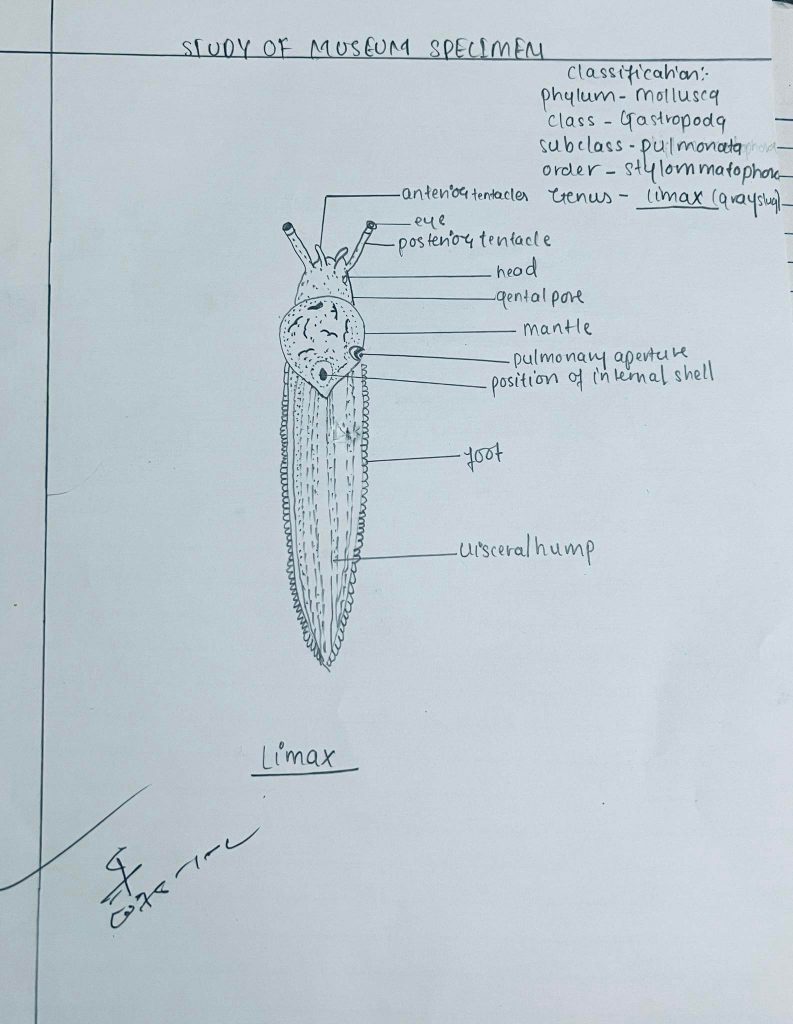 STUDY OF MUSEUM SPECIMEN
Classification:-
phylum - Mollusca
class - Gastropoda
subclass - pulmonata
order - stylommatophora
Genus - Limax (grayslug)
anterior tentacles
eye
posterior tentacle
head
gental pore
mantle
pulmonary aperture
position of internal shell
foot
visceral hump
Limax